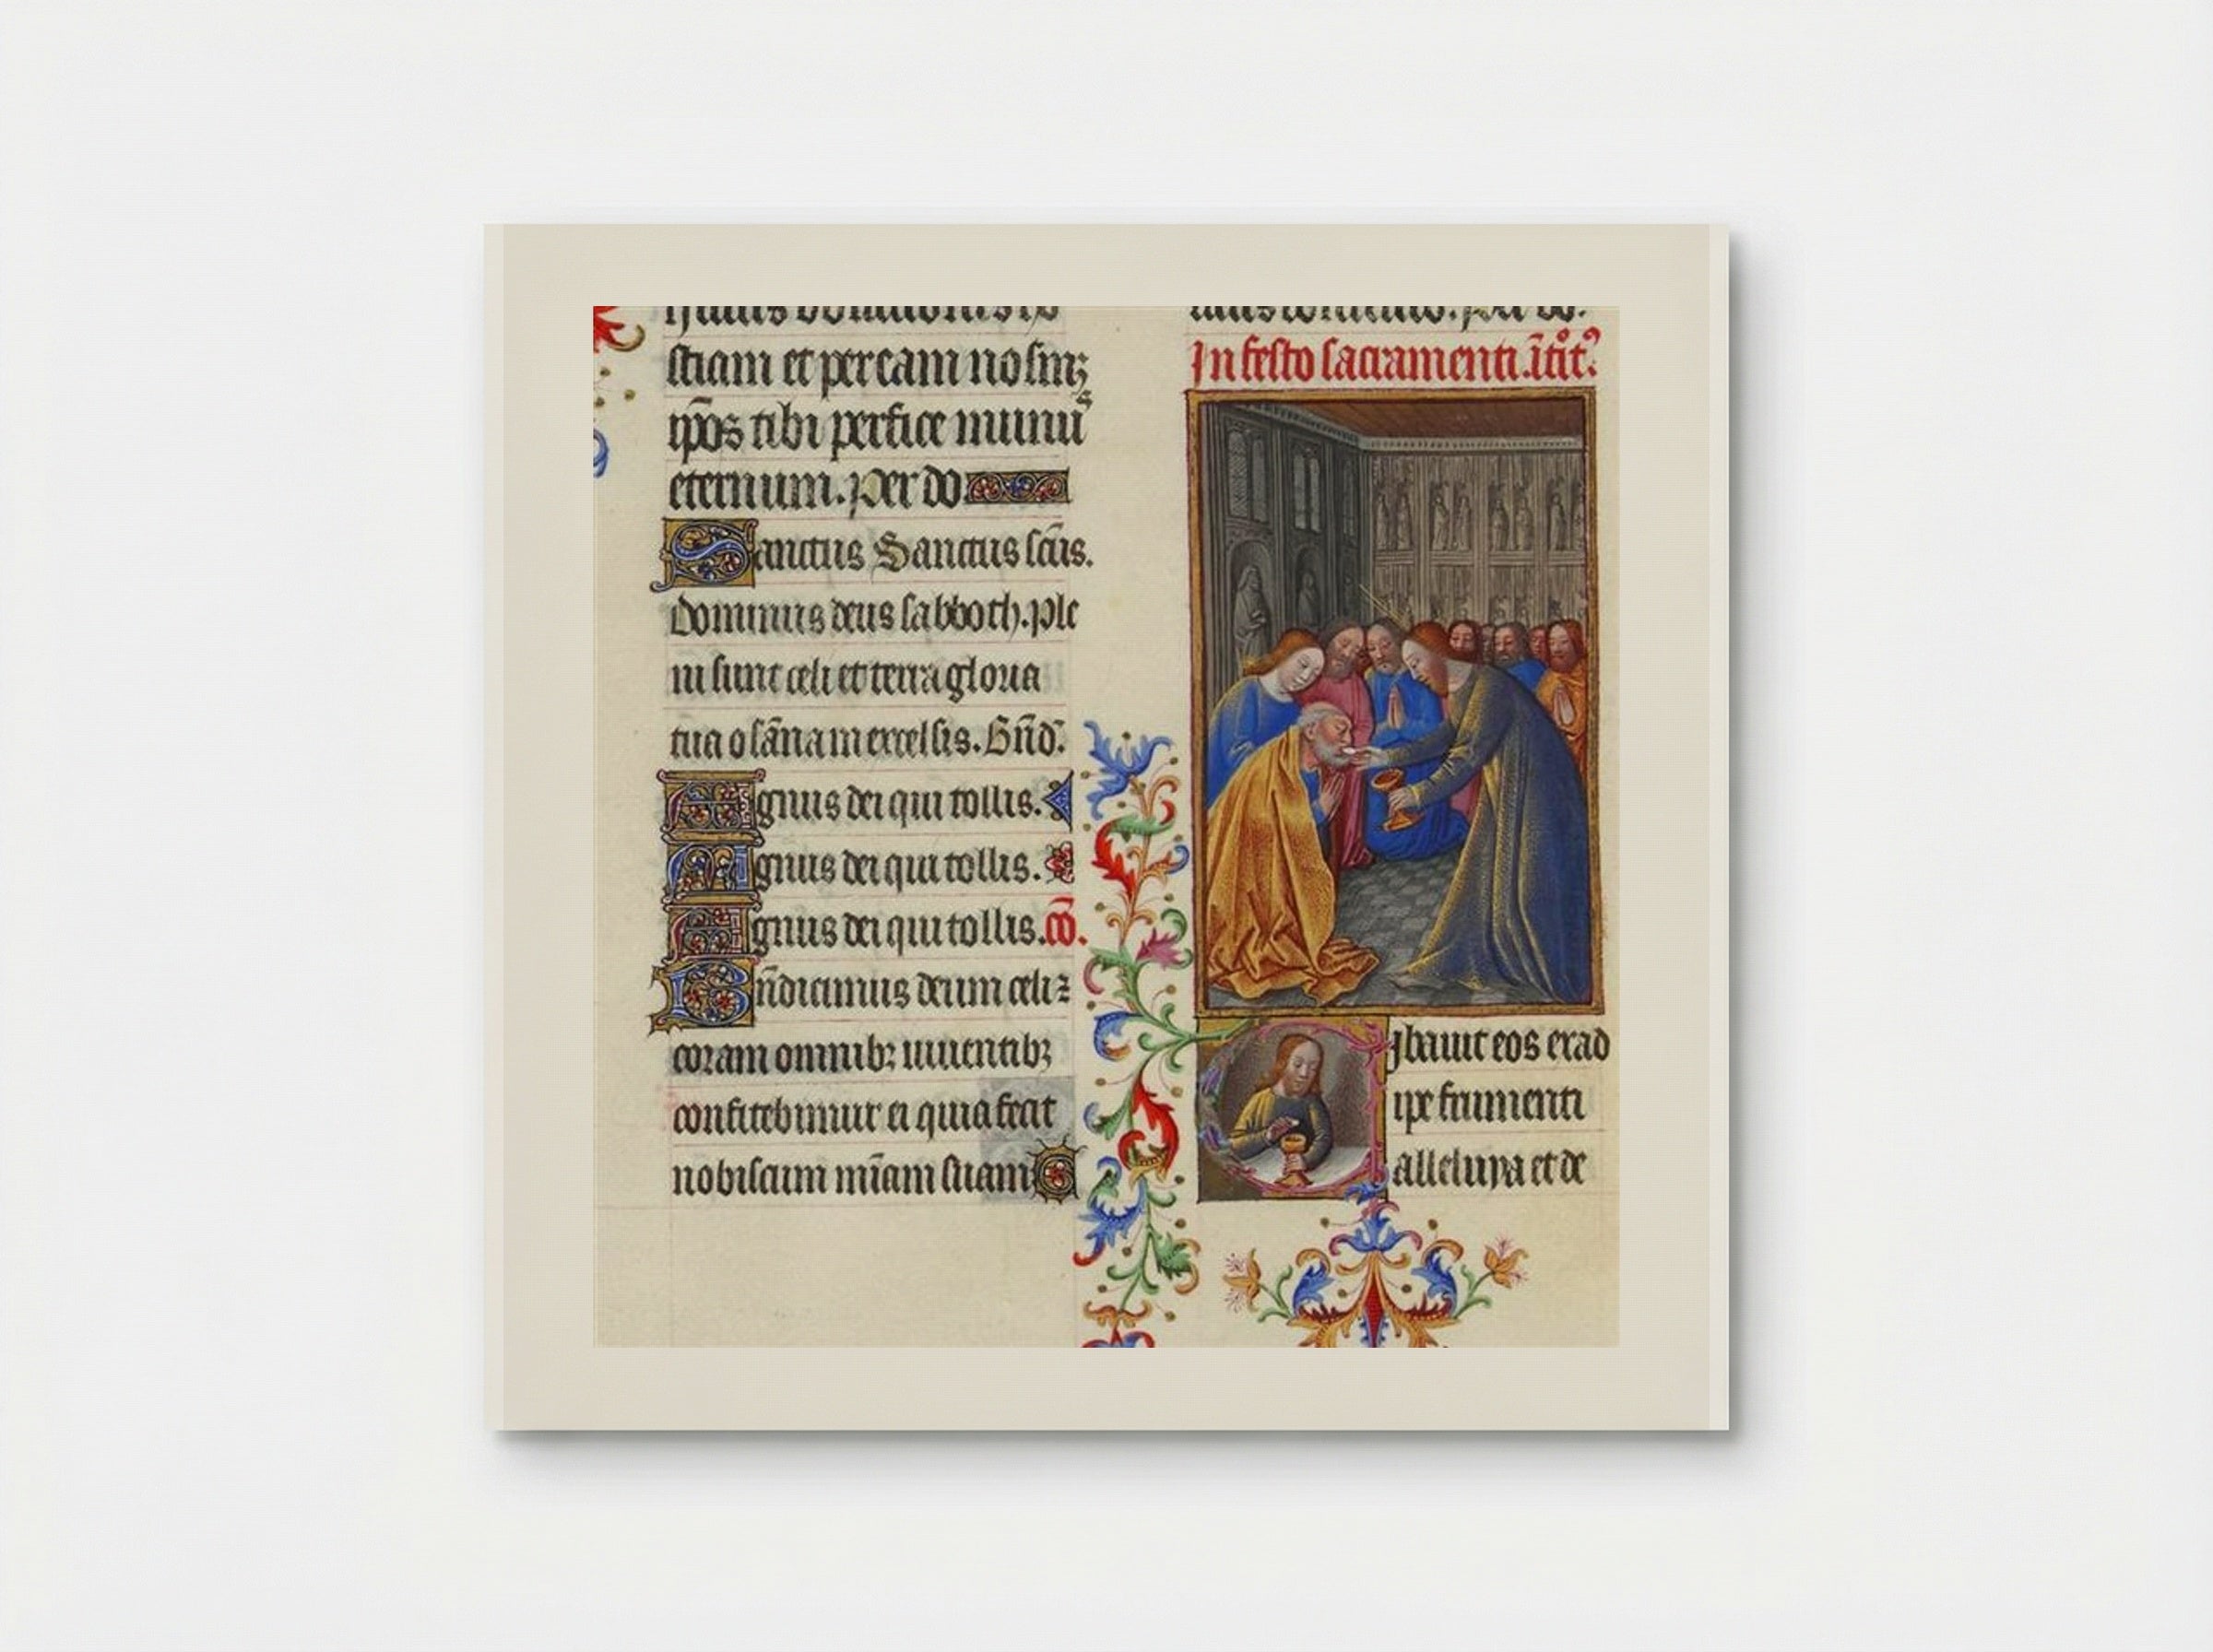 stiam et per eam nosmꝫ
ip̄os tibi perfice munu᷒
eternum. Per do
Sanctus Sanctus sc̄us.
Dominus deus sabboth. Ple
ni sunt celi et terra gloria
tua osāna in excelsis. Bn̄d.
Agnus dei qui tollis.
Agnus dei qui tollis.
Agnus dei qui tollis. cō.
Bn̄dicimus deum celi ꝛ
coram omnibꝫ uiuentibꝫ
confitebimur ei quia fecit
nobiscum mīam suam
In festo sacramenti.
Cibauit eos ex ad
ipe frumenti
alleluya et de